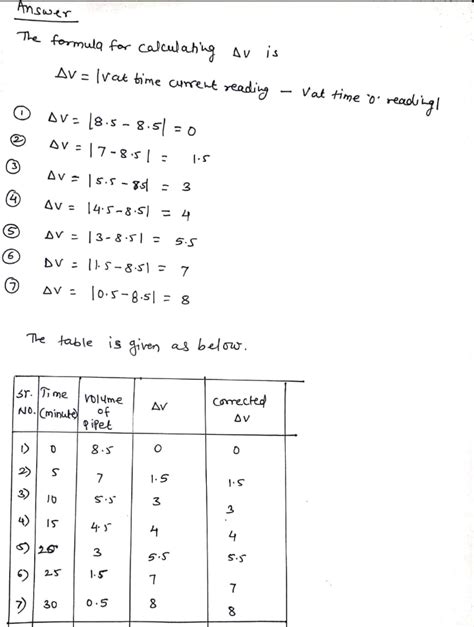 Answer
The formula for calculating ΔV is
ΔV = |V at time current reading - V at time '0' reading|
① ΔV = |8.5 - 8.5| = 0
② ΔV = |7 - 8.5| = 1.5
③ ΔV = |5.5 - 85| = 3
④ ΔV = |4.5 - 8.5| = 4
⑤ ΔV = |3 - 8.5| = 5.5
⑥ ΔV = |1.5 - 8.5| = 7
⑦ ΔV = |0.5 - 8.5| = 8
The table is given as below.
Sr. NO. Time (minute) Volume of Pipet ΔV Corrected ΔV
1) 0 8.5 0 0
2) 5 7 1.5 1.5
3) 10 5.5 3 3
4) 15 4.5 4 4
5) 3 5.5 5.5
6) 25 1.5 7 7
7) 30 0.5 8 8